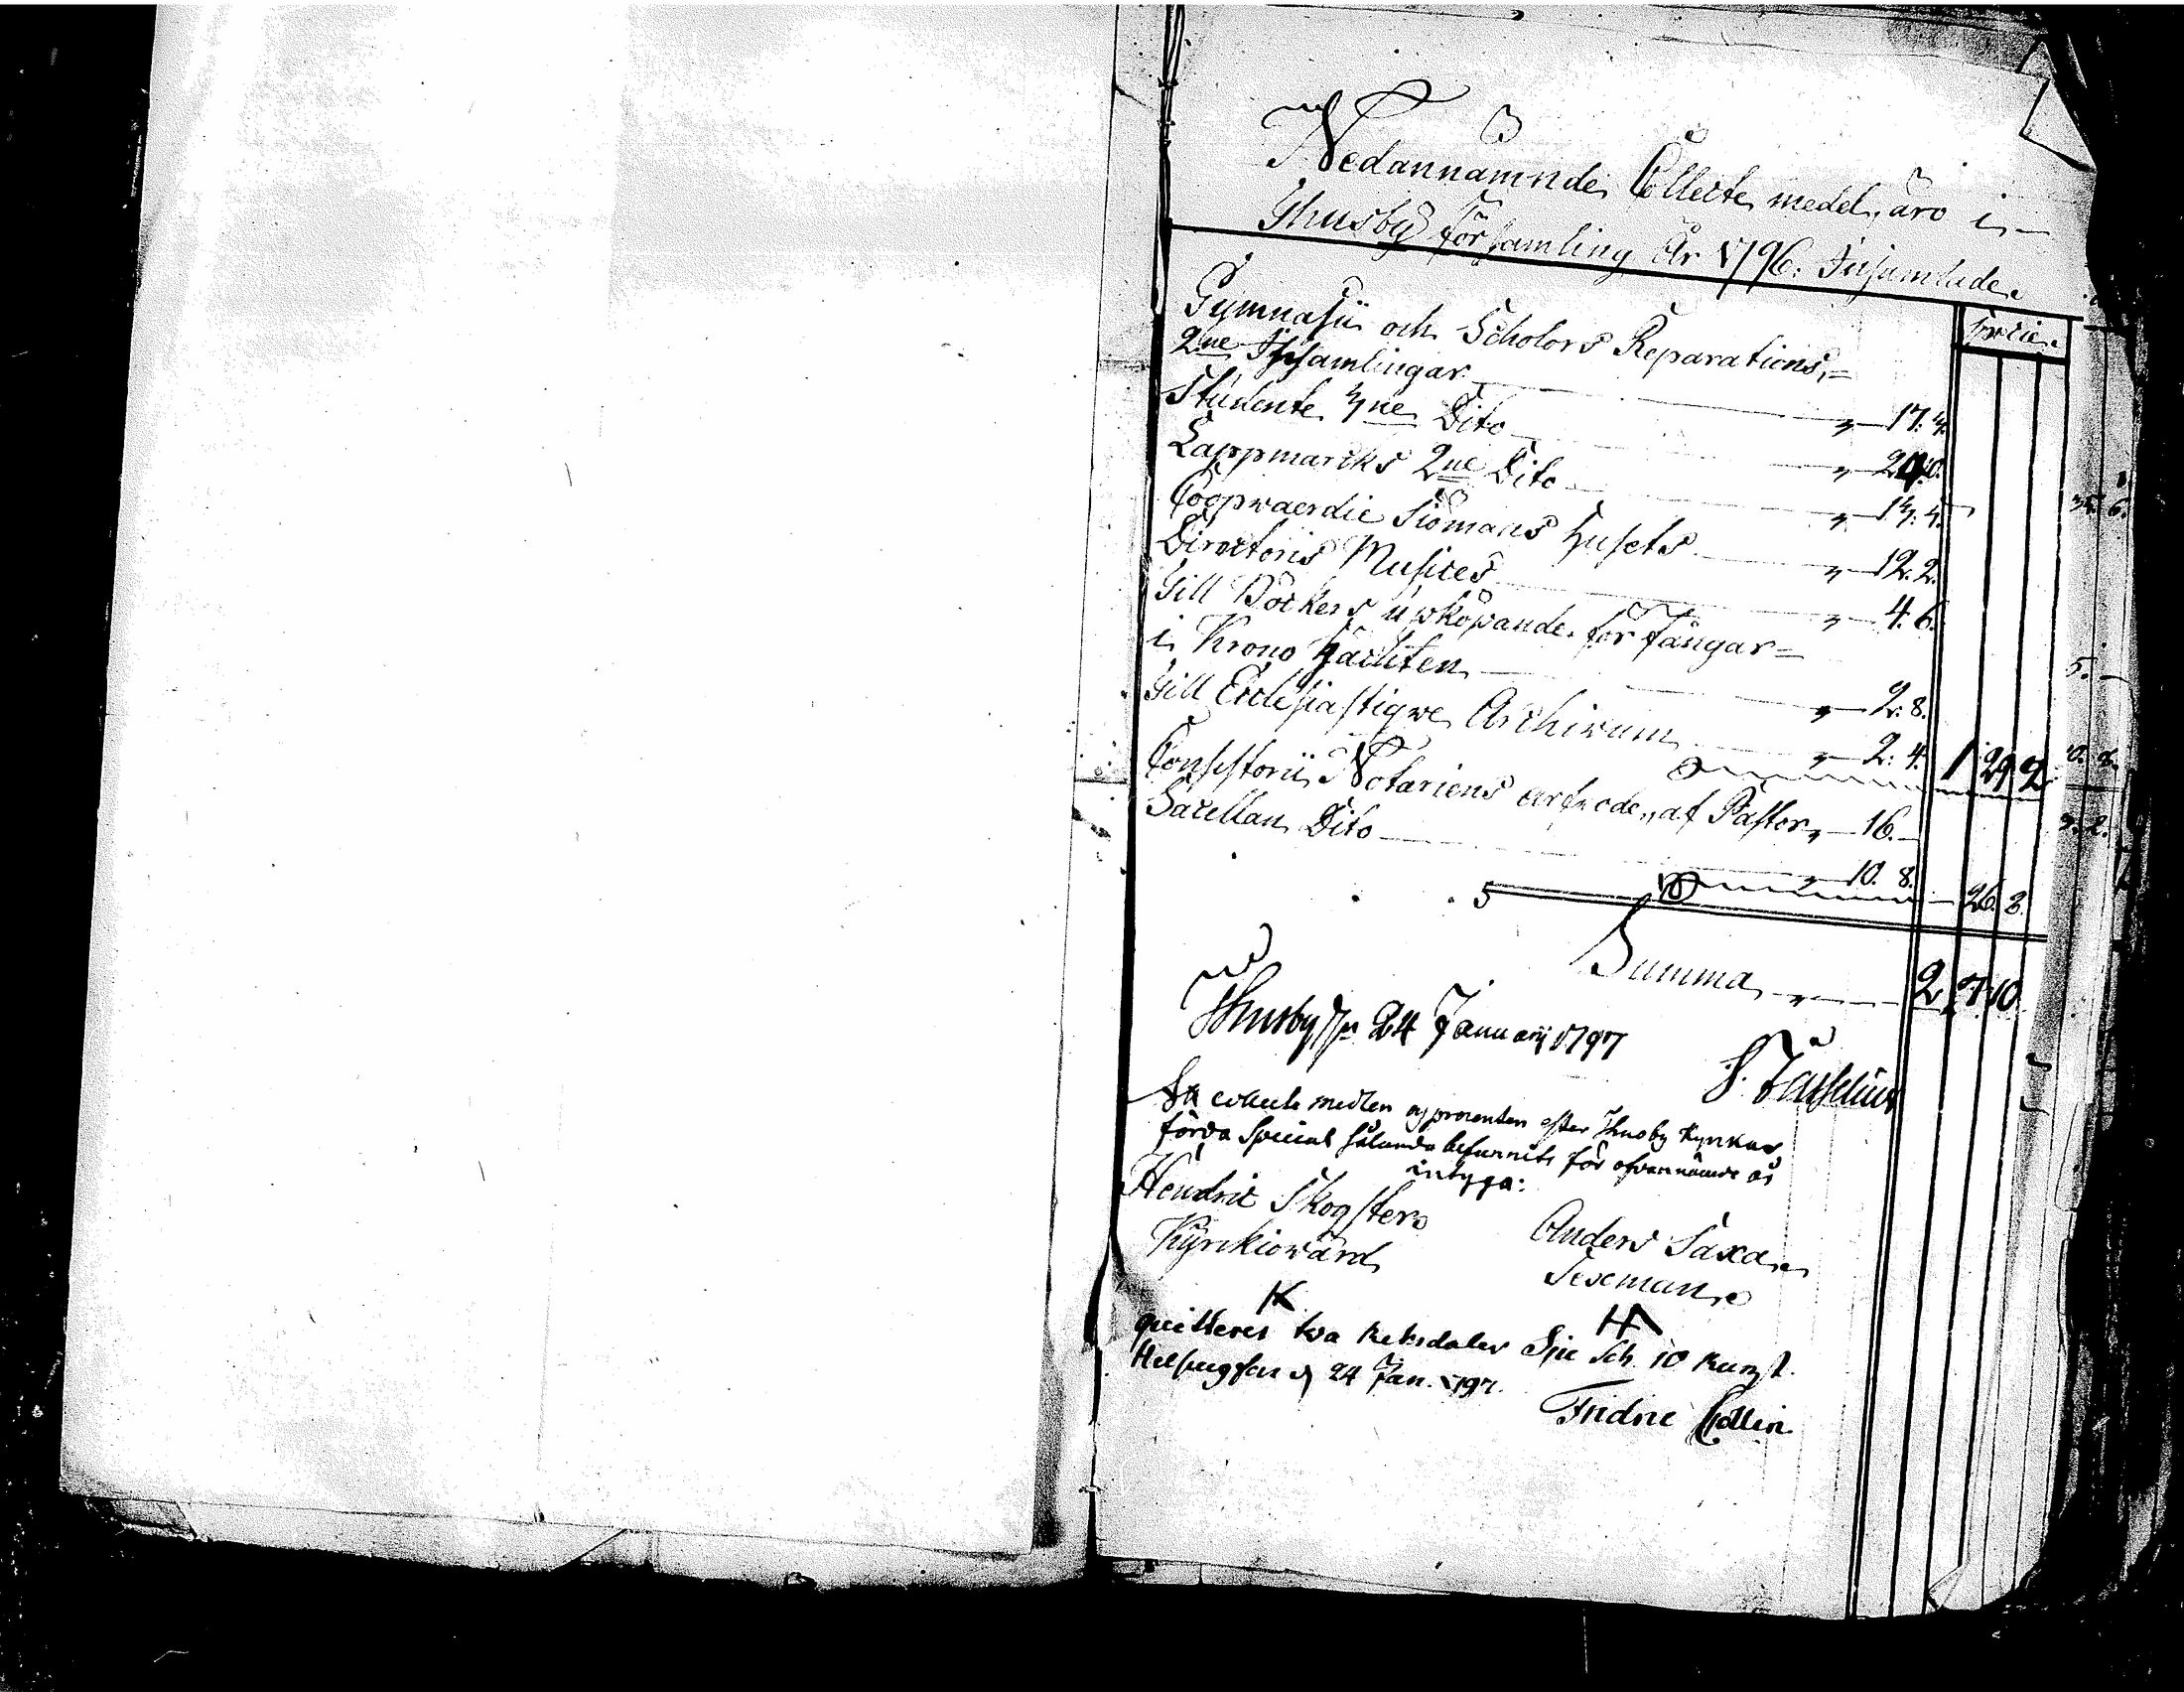 Nedannämnde Collecte medel, äro i
Thusby Församling År 1796. Insamlade.
Specie.
Gymnasii och Scholors Reparations,=
2ne Insamlingar " 17. 4.
Studente 3ne Dito " 24.
Lappmarcks 2ne Dito " 13. 4.
Coopvaerdie Siömans Husets " 12. 2.
Directoris Musices " 4. 6.
Till Böckers upköpande för Fångar=
i Krono Häckten " 2. 8.
Till Ecclesiastique Archivum " 2. 4. 1 29 2
Consistorii Notariens af Pastor " 16.—
Sacellan Dito " 10. 8. — 26. 8.
Summa " 2 7. 10.
Thusby 24 Januarij 1797
collecte medlen efter Thusby Kyrkas
förda Special sålunda befunnits för ofvannämde år
intyga:
Hendric Skogster Anders Saxa
Kyrkiovärd Sexeman
quitteres två Riksdaler Spie Sch. 10 runst.
Helsingfors d 24 Jan. 1797.
Fridric Collin